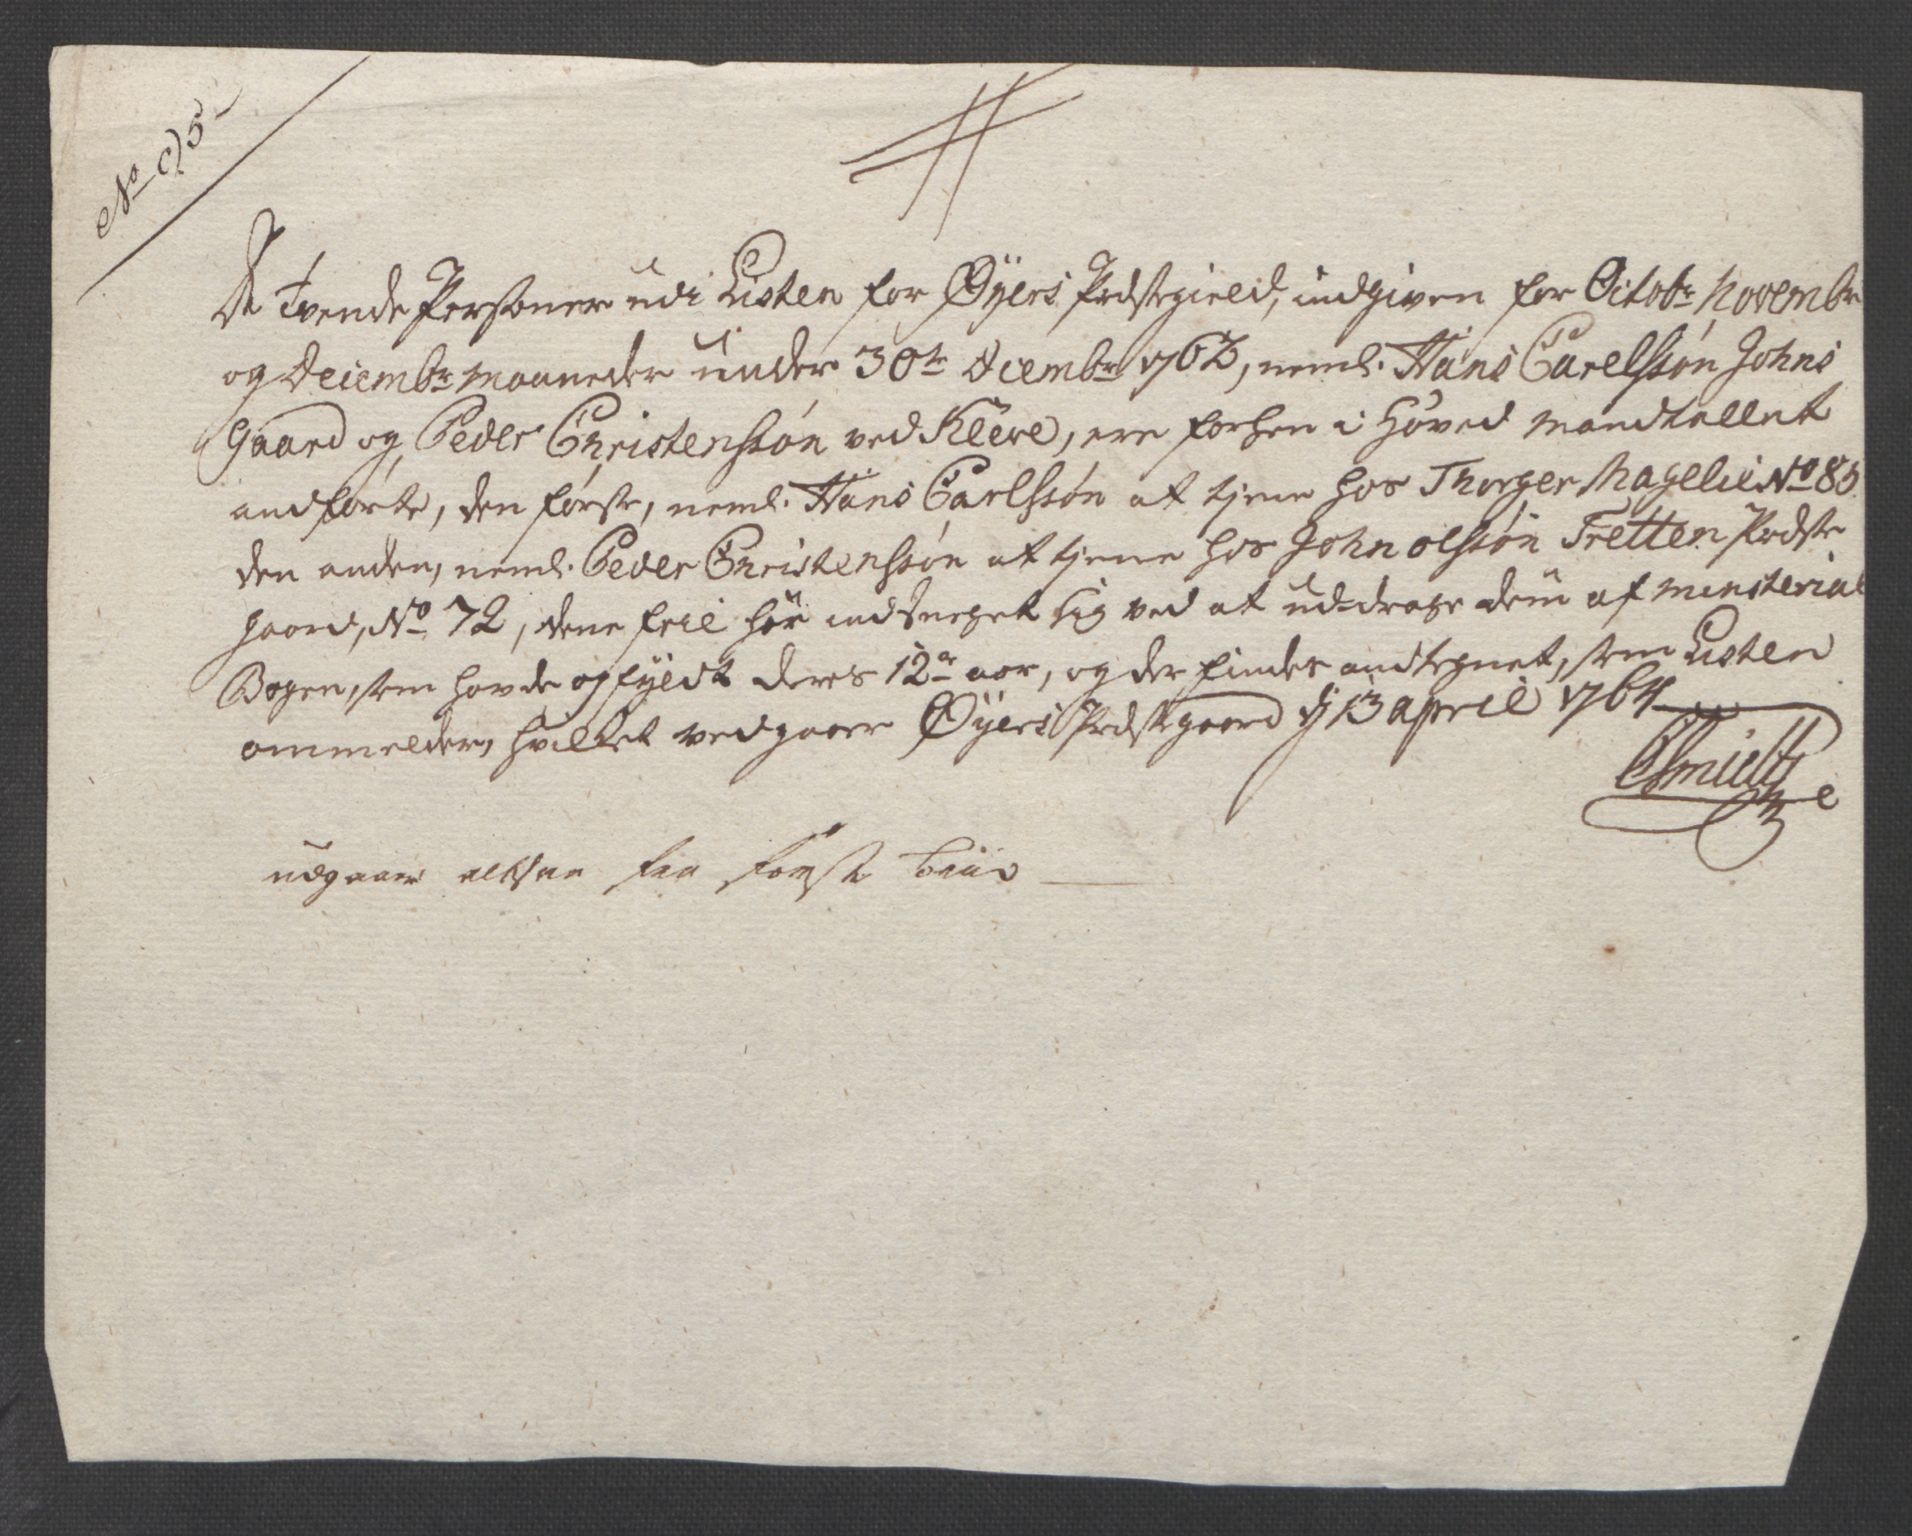 No 95
De Tvende Personer udi Listen for Øyers Præstegield, indgiven for Octobr Novembr
og Decembr Maaneder under 30te Decembr 1763, neml. Hans Carelssøn Johns
Gaard og Peder Christenssøn ved Kleve, ere forhen i Hoved Mandtallet
anførte, den første, neml. Hans Carlssøn at tjene hos Thorger Magelie No 85
den anden, neml. Peder Christenssøn at tjene hos John Olssøn Tretten Præste
gaard, No 72, denne feil har indsneget sig ved at uddrage dem af Ministerial
Bogen, som havde opfyldt deres 12te aar, og der findes andtegnet, som Listen
ommelder, hvilket vedgaaer Øyers Præstegaard d 13 April 1764
CSmidth
udgaaer altsaa